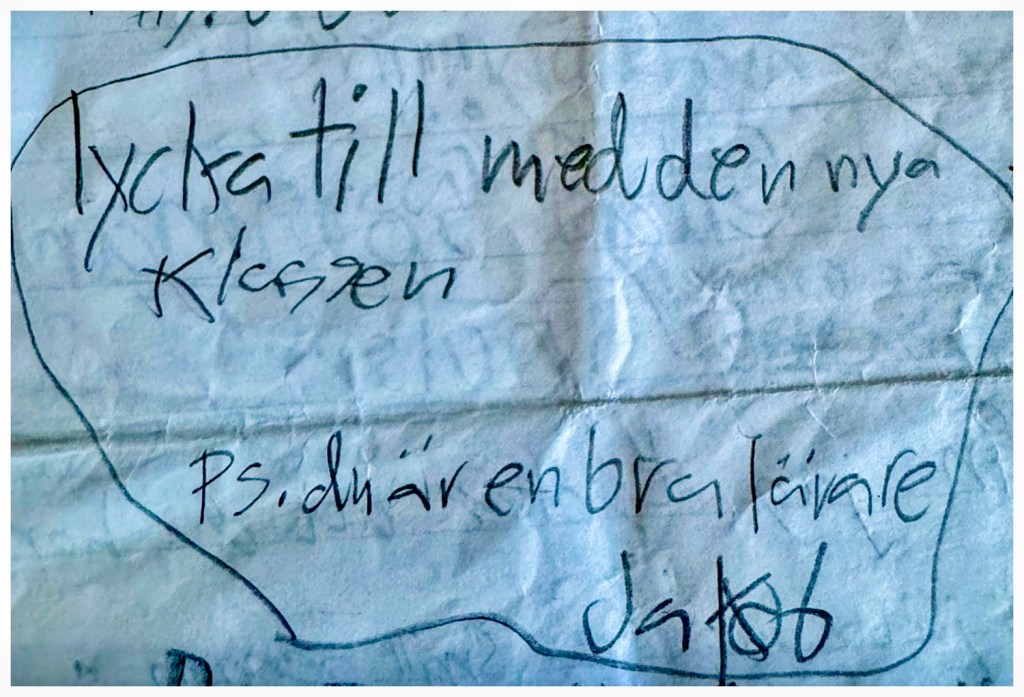 lycka till med den nya
klassen
Ps. du är en bra lärare
Jakob